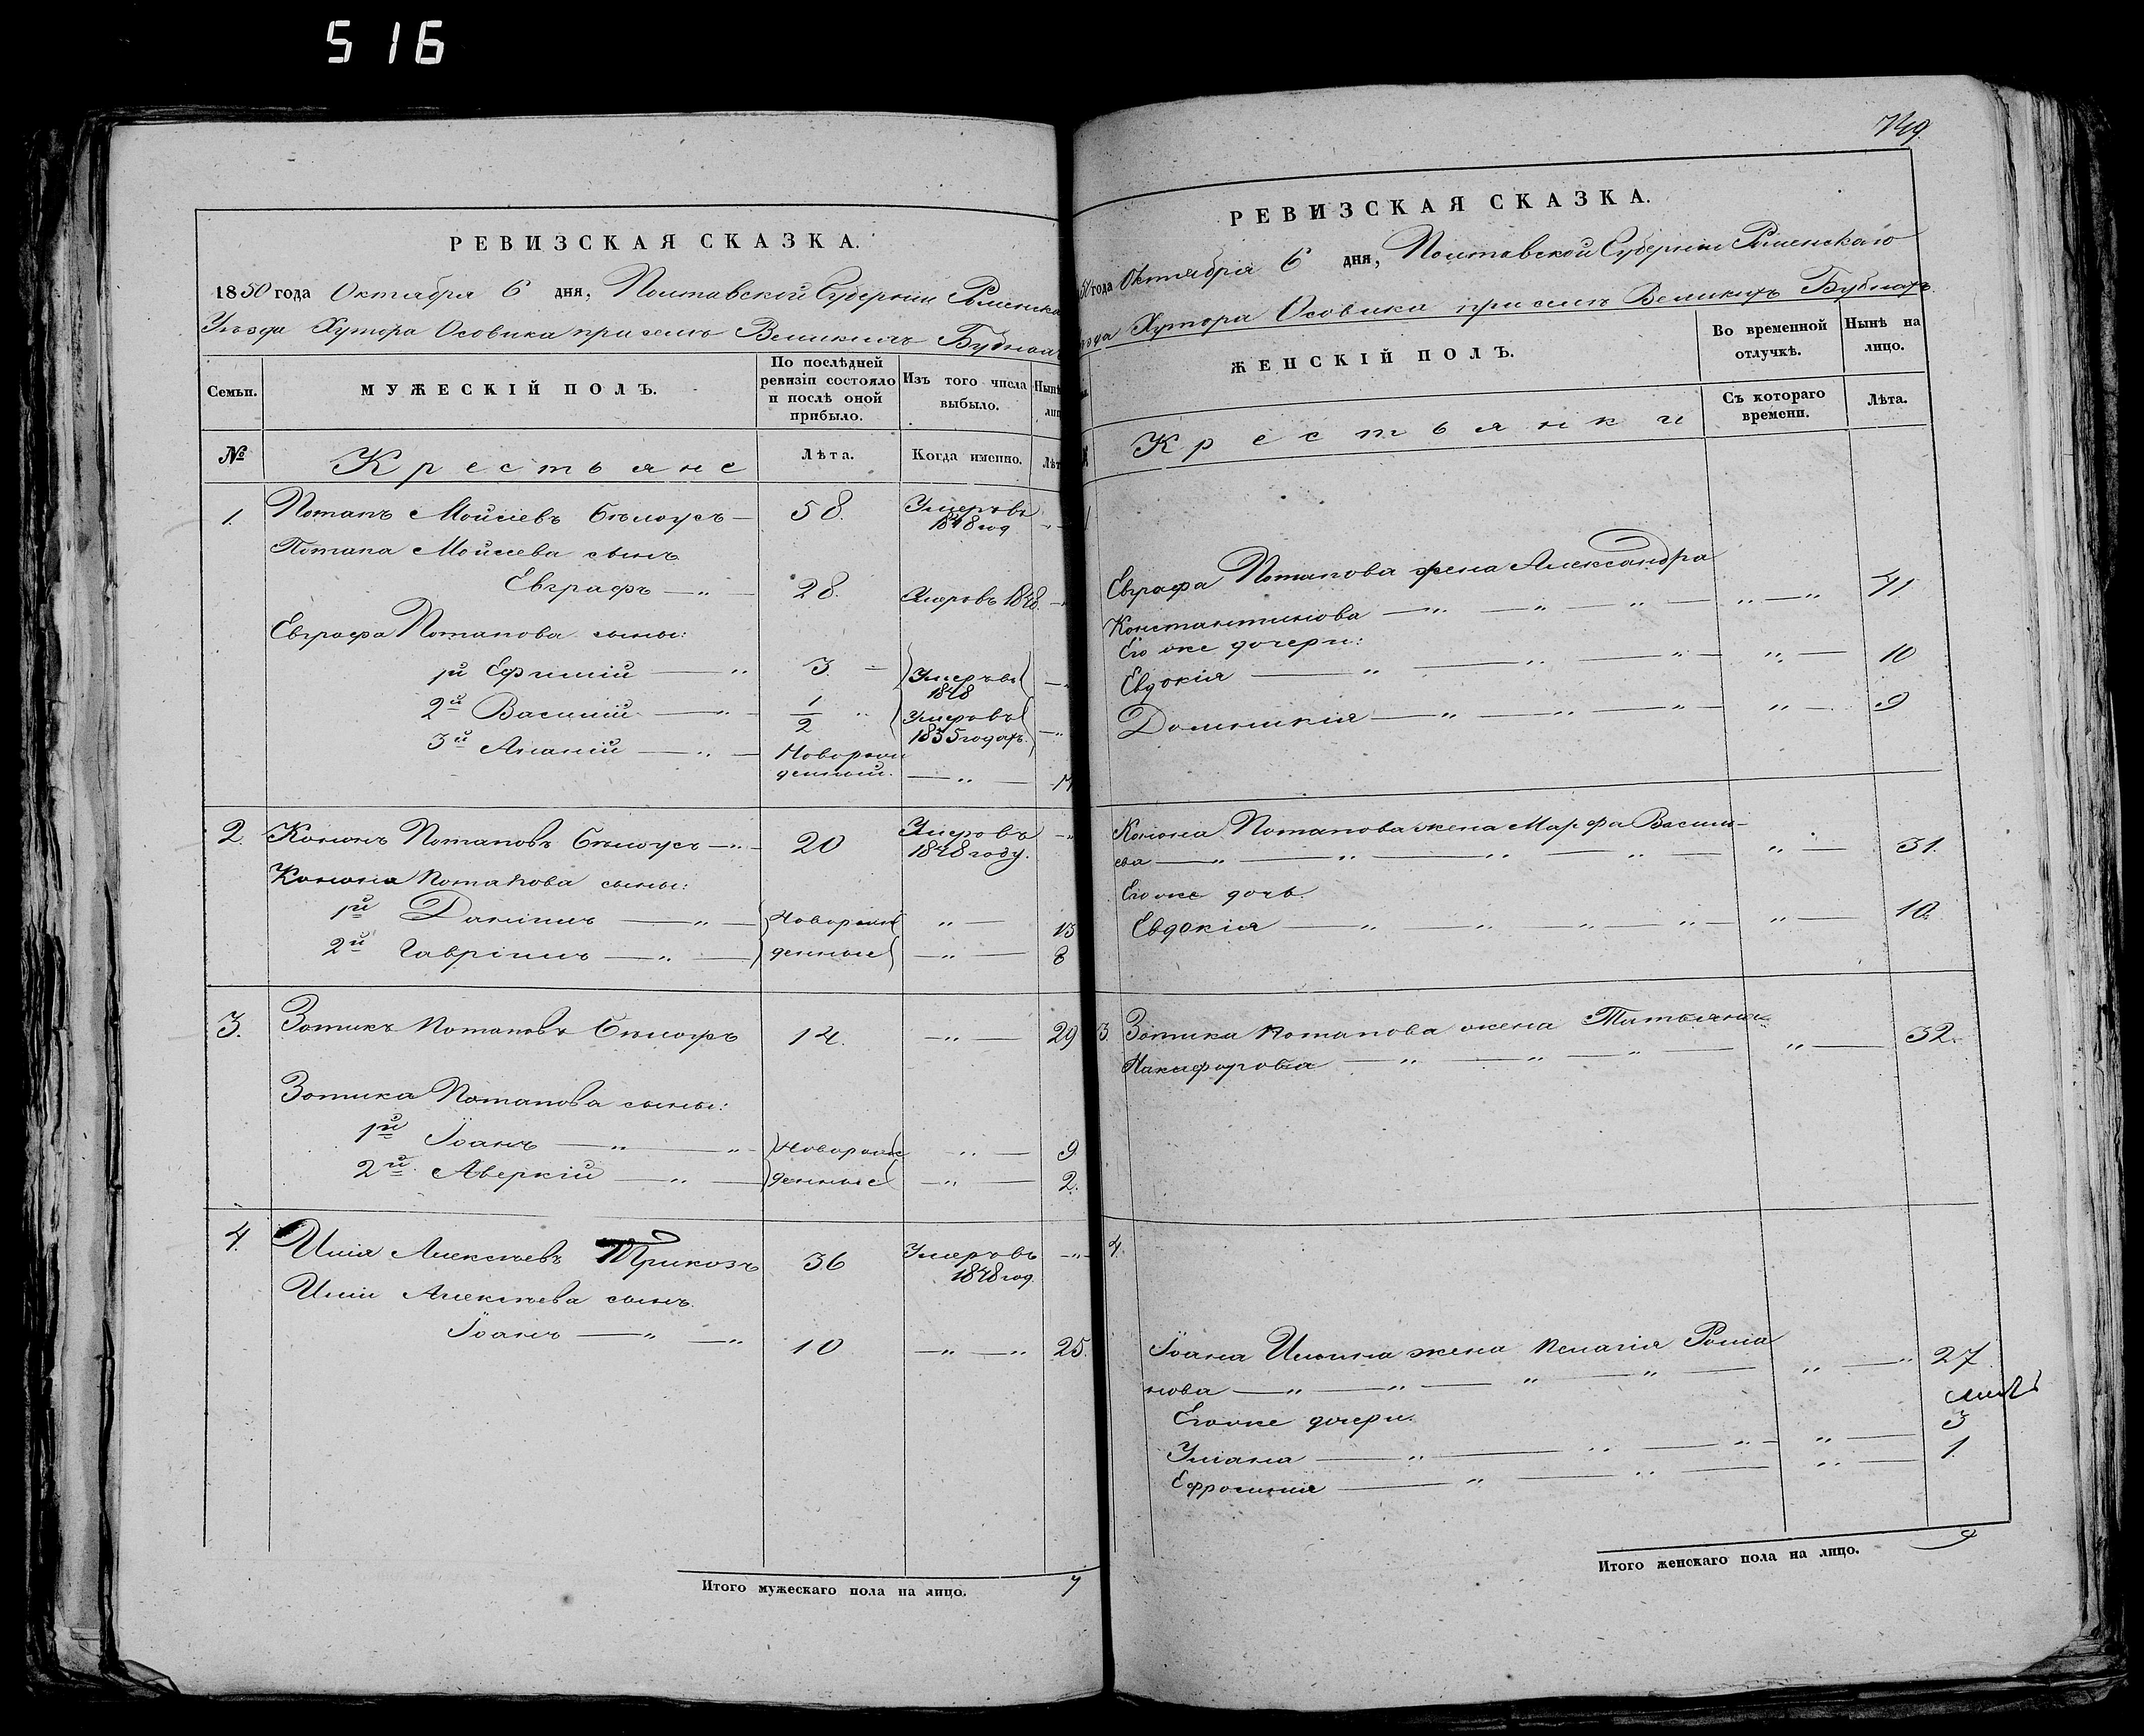 516
РЕВИЗСКАЯ СКАЗКА.
1850 года Октября 6 дня, Полтавской Губерніи Роменска
Уѣзда Хутора Осовика при селѣ Великихъ Бубнах
Семьи.
МУЖЕСКІЙ ПОЛЪ.
По послѣдней ревизіи состояло и послѣ оной прибыло.
Изъ того числа выбыло.
Нынѣ
лиц
№
Крестьяне
Лѣта.
Когда именно.
Лѣт
1. Потапъ Мойсіевъ Бѣлоусъ — 58. Умеръ въ
1848 год
Потапа Мойсіева сынъ
Евграфъ — " — 28. Умеръ въ 1848. — "
Евграфа Потапова сыны:
1й Ефимій — " 3. — Умеръ въ
1848 — "
2й Василій — " — 1/2 " Умеръ въ
1835 годахъ. — "
3й Ананій — " — Новорож
денный. — " — 14
2. Кононъ Потаповъ Бѣлоусъ — " — 20 Умеръ въ — "
1848 году.
Конона Потапова сыны:
1й Даніилъ — " — Новорож " — 13
2й Гавріилъ — " — денные — " — 8
3. Зотикъ Потаповъ Бѣлоусъ 14. — " — 29
Зотика Потапова сыны:
1й Іоанъ — " — " Новорож " — 9
2й Аверкій — " — денные — " — 2.
4. Илія Алексѣевъ Трикозъ 36 Умеръ въ — "
1848 год.
Иліи Алексѣева сынъ.
Іоанъ — " — " 10 — " — " 25.
Итого мужескаго пола на лицо. 7
749.
РЕВИЗСКАЯ СКАЗКА.
50 года Октября 6 дня, Полтавской Губерніи Роменскаго
ѣзда Хутора Осовики при селѣ Великихъ Бубнахъ.
ЖЕНСКІЙ ПОЛЪ.
Во временной отлучкѣ.
Нынѣ на лицо.
Крестьянки
Съ котораго времени.
Лѣта.
Евграфа Потапова жена Александра
Константинова — " — " — " — " — " 41.
Его же дочери:
Евдокія — " — " — " — " — 10
Домникія — " — " — " — " — 9
Конона Потапова жена Марфа Василь-
ева — " — " — " — " — " — 31.
Его же дочь.
Евдокія — " — " — " — " — " — 10.
3. Зотика Потапова жена Татьяна
Никифорова — " — " — " — " — 32.
4.
Іоана Ильина жена Пелагія Рома
нова — " — " — " — " — " — " 27.
Его же дочери.
Уліана — " — " — " — " — 3
Ефросинія — " — " — " — 1.
Итого женскаго пола на лицо. 9